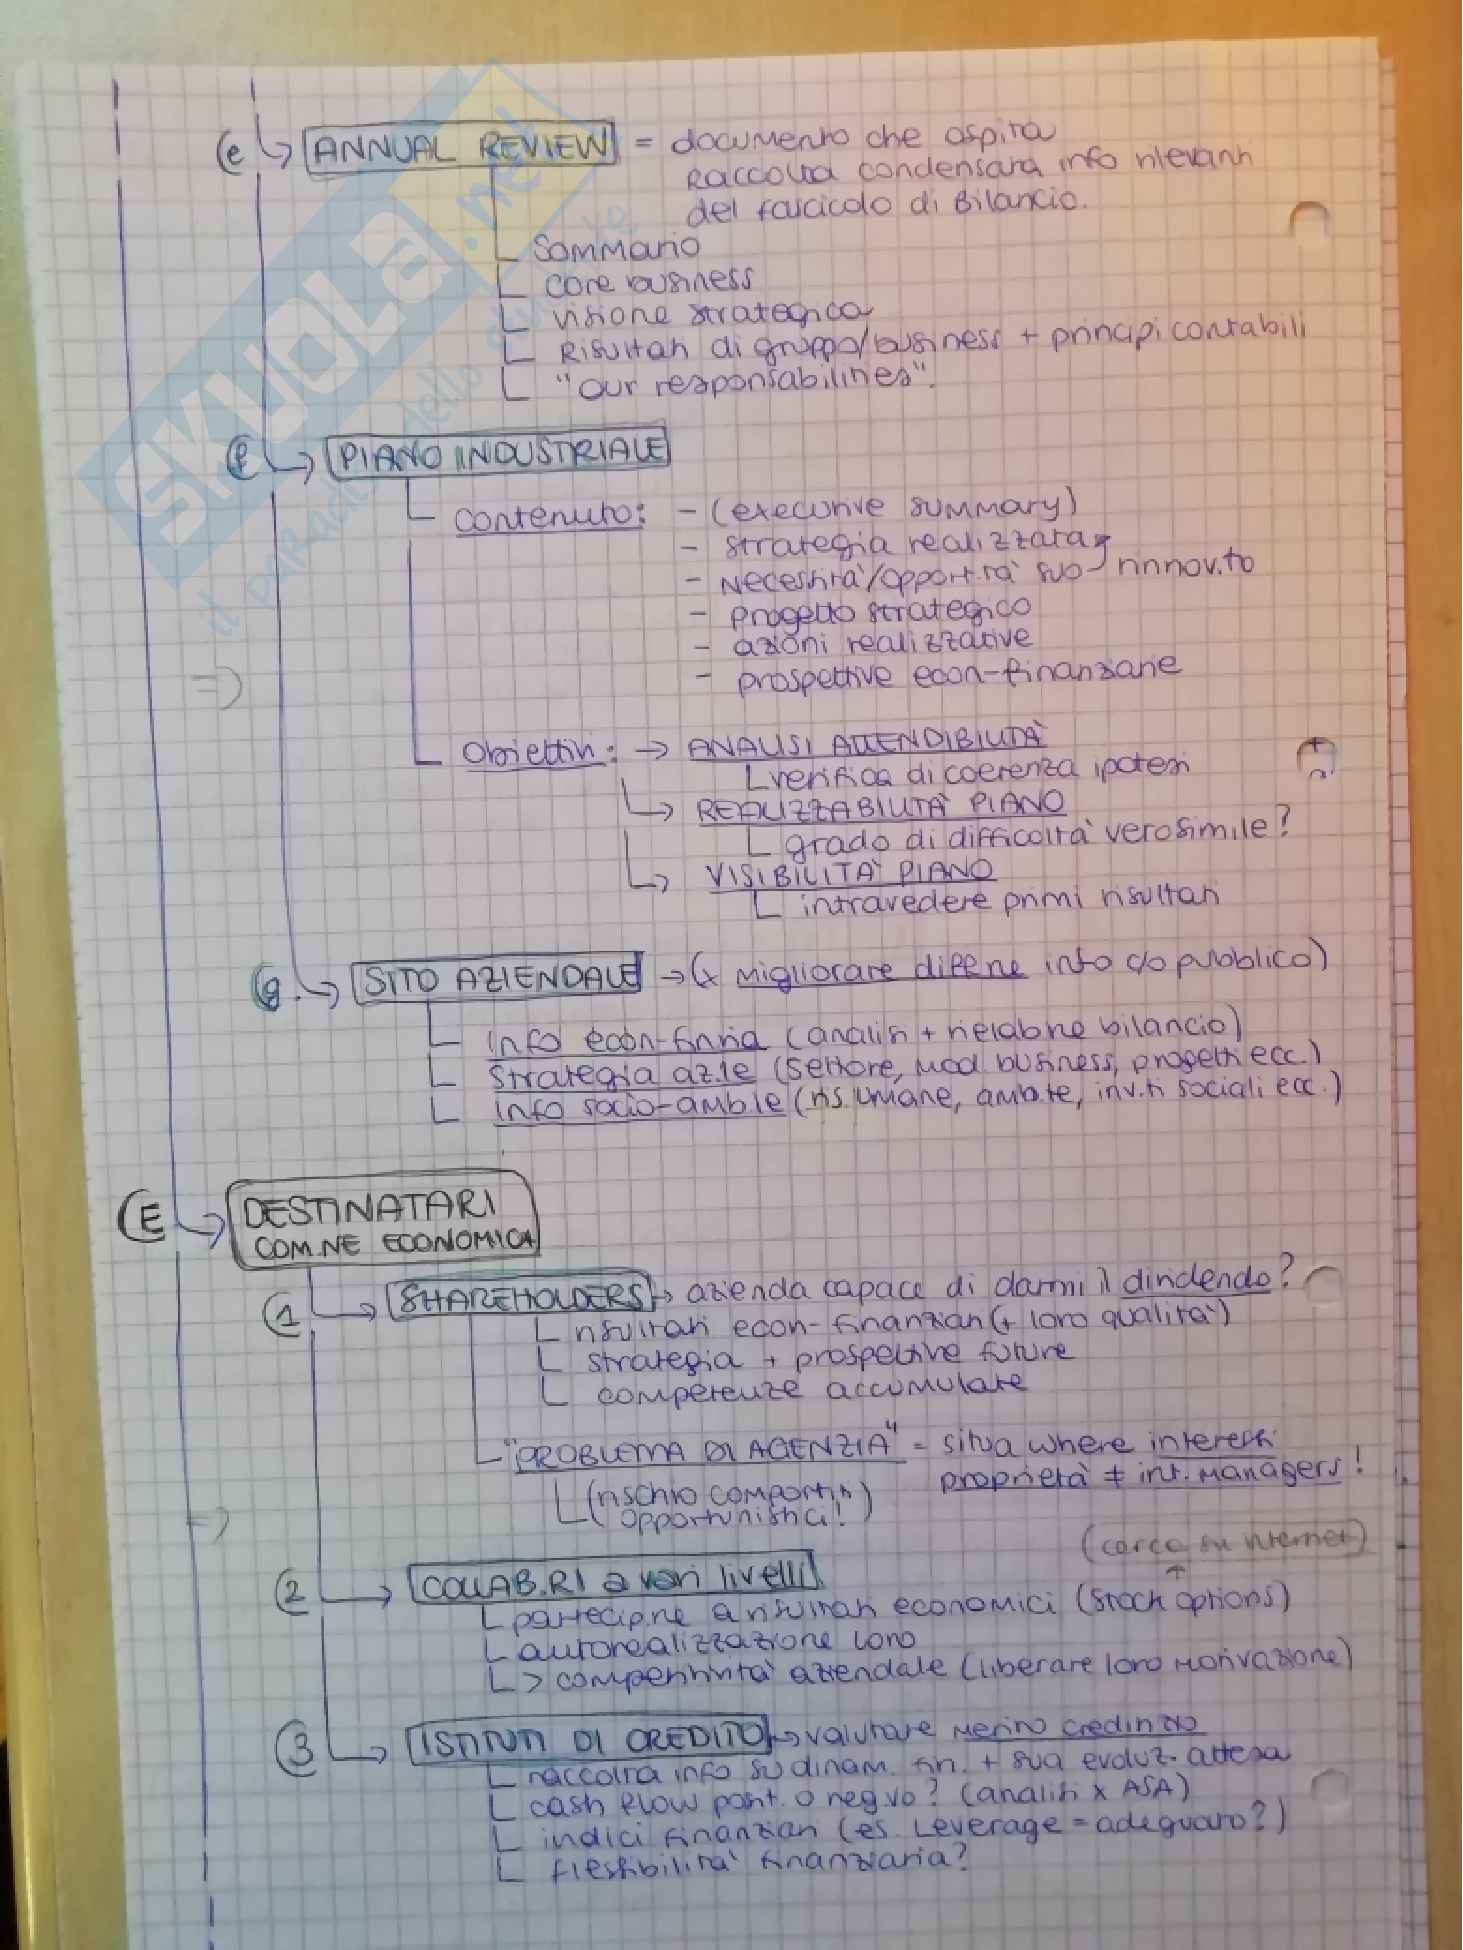 e → ANNUAL REVIEW = documento che aspira
Raccolta condensata info rilevanti
del fascicolo di Bilancio.
Sommario
core business
visione strategica
Risultati di gruppo/business + principi contabili
"our responsabilities".
f → PIANO INDUSTRIALE
contenuto: - (executive summary)
- strategia realizzata
- necessità/opport.tà suo rinnov.to
- progetto strategico
- azioni realizzative
- prospettive econ-finanziarie
⇒
Obiettivi: → ANALISI ATTENDIBILITÀ
verifica di coerenza ipotesi
→ REALIZZABILITÀ PIANO
grado di difficoltà verosimile?
→ VISIBILITÀ PIANO
intravedere primi risultati
g → SITO AZIENDALE → (x migliorare diff.ne info c/o pubblico)
Info econ-fin.ria (analisi + rielab.ne bilancio)
Strategia az.le (settore, mod. business, progetti ecc.)
Info socio-amb.le (ris. umane, amb.te, inv.ti sociali ecc.)
E → DESTINATARI
COM.NE ECONOMICA
1 → SHAREHOLDERS → azienda capace di darmi il dividendo?
risultati econ-finanziari (+ loro qualità)
strategia + prospettive future
competenze accumulate
"PROBLEMA DI AGENZIA" = situa where interessi
proprietà ≠ int. managers!
(rischio comport.ti
opportunistici!)
⇒
(cerca su internet)
2 → COLLAB.RI a vari livelli
partecip.ne a risultati economici (stock options)
autorealizzazione loro
> competitività aziendale (liberare loro motivazione)
3 → ISTITUTI DI CREDITO → valutare merito creditizio
raccolta info su dinam. fin. + sua evoluz. attesa
cash flow posit. o neg.vo? (analisi x ASA)
indici finanziari (es. Leverage = adeguato?)
flessibilità finanziaria?
SKUOLA.net